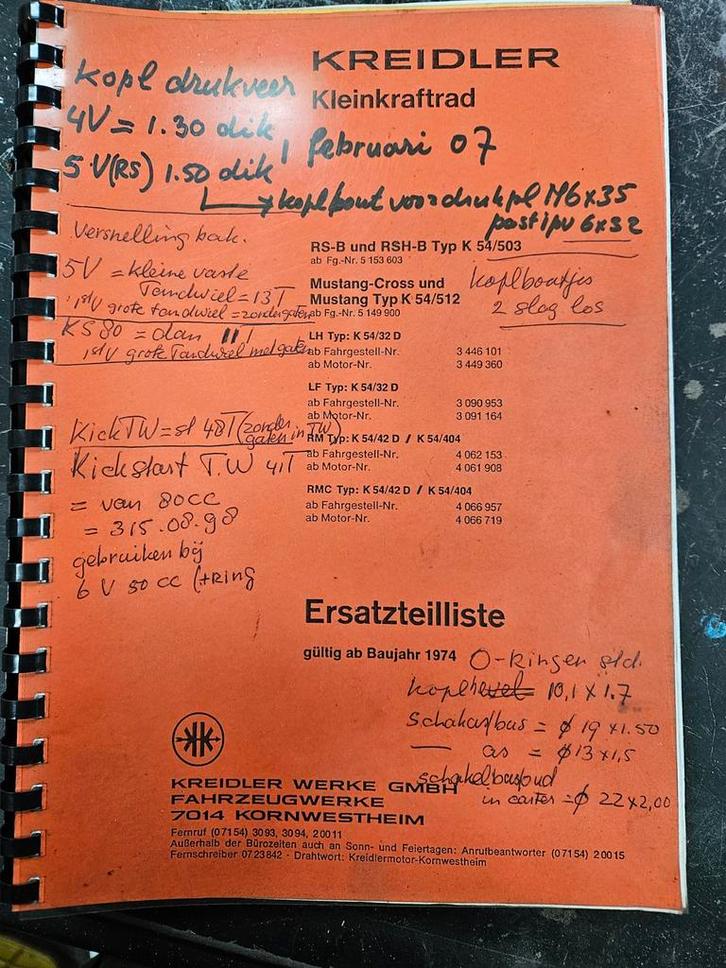 KREIDLER
Kleinkraftrad
Kopl drukveer
4V = 1.30 dik
5V(RS) 1.50 dik
1 februari 07
koplbout voor drukpl M6x35
past ipv 6x32
Versnelling bak.
5V = kleine vaste
Tandwiel = 13T
1ste V grote tandwiel = zonder gaten
KS 80 = dan 11T
1ste V grote Tandwiel met gaten
RS-B und RSH-B Typ K 54/503
ab Fg.-Nr. 5 153 603
Mustang-Cross und
Mustang Typ K 54/512
ab Fg.-Nr. 5 149 900
koplboutjes
2 slag los
LH Typ: K 54/32 D
ab Fahrgestell-Nr. 3 446 101
ab Motor-Nr. 3 449 360
LF Typ: K 54/32 D
ab Fahrgestell-Nr. 3 090 953
ab Motor-Nr. 3 091 164
RM Typ: K 54/42 D / K 54/404
ab Fahrgestell-Nr. 4 062 153
ab Motor-Nr. 4 061 908
RMC Typ: K 54/42 D / K 54/404
ab Fahrgestell-Nr. 4 066 957
ab Motor-Nr. 4 066 719
Kick TW = st 48T (zonder
gaten in TW)
Kickstart T.W 41T
= van 80cc
= 315.08.98
gebruiken bij
6 V 50 cc (+Ring
Ersatzteilliste
gültig ab Baujahr 1974
O-Ringen std.
koplhevel 10,1 x 1.7
Schakelas/bus = ø 19 x 1.50
— as = ø 13 x 1,5
in carter = ø 22 x 2,00
KREIDLER WERKE GMBH
FAHRZEUGWERKE
7014 KORNWESTHEIM
Fernruf (07154) 3093, 3094, 20011
Außerhalb der Bürozeiten auch an Sonn- und Feiertagen: Anrufbeantworter (07154) 20015
Fernschreiber 0723842 · Drahtwort: Kreidlermotor-Kornwestheim